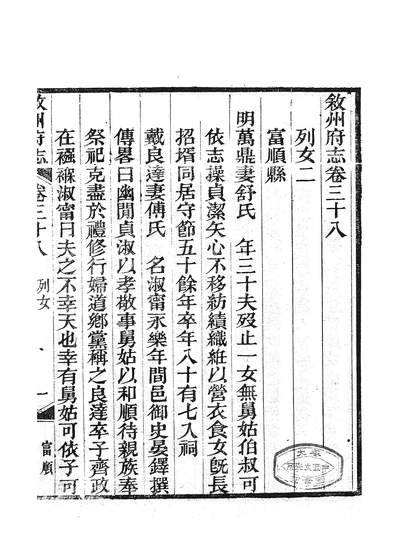 敘州府志卷三十八
列女二
富順縣
明萬鼎妻舒氏 年三十夫歿止一女無舅姑伯叔可
依志操貞潔矢心不移紡績織絍以營衣食女旣長
招壻同居守節五十餘年卒年八十有七入祠
戴良達妻傅氏 名淑甯永樂年間邑御史晏鐸撰
傳畧曰幽閒貞淑以孝敬事舅姑以和順待親族奉
祭祀克盡於禮修行婦道鄉黨稱之良達卒子齊政
在襁褓淑甯曰夫之不幸天也幸有舅姑可依子可
敘州府志 卷三十八 列女 一 富順